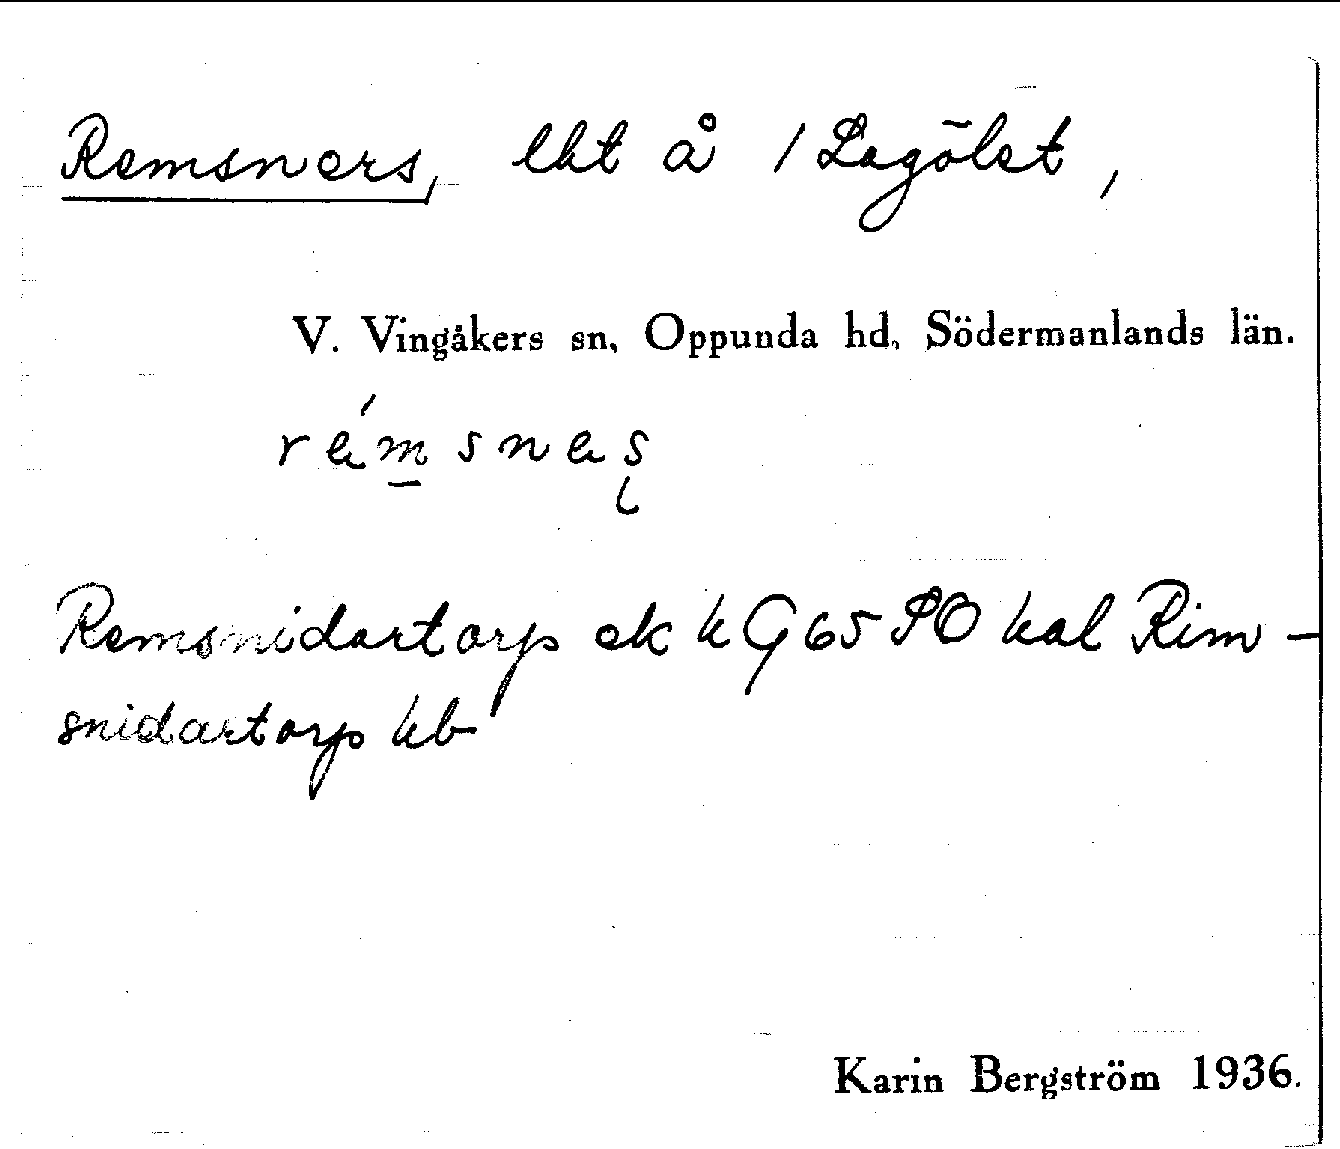 Remsners, lht å 1 Lagölet,
V. Vingåkers sn, Oppunda hd, Södermanlands län.
rémsneş
Remsnidartorp ek k G65 SO kal Rim-
snidartorp kb
Karin Bergström 1936.